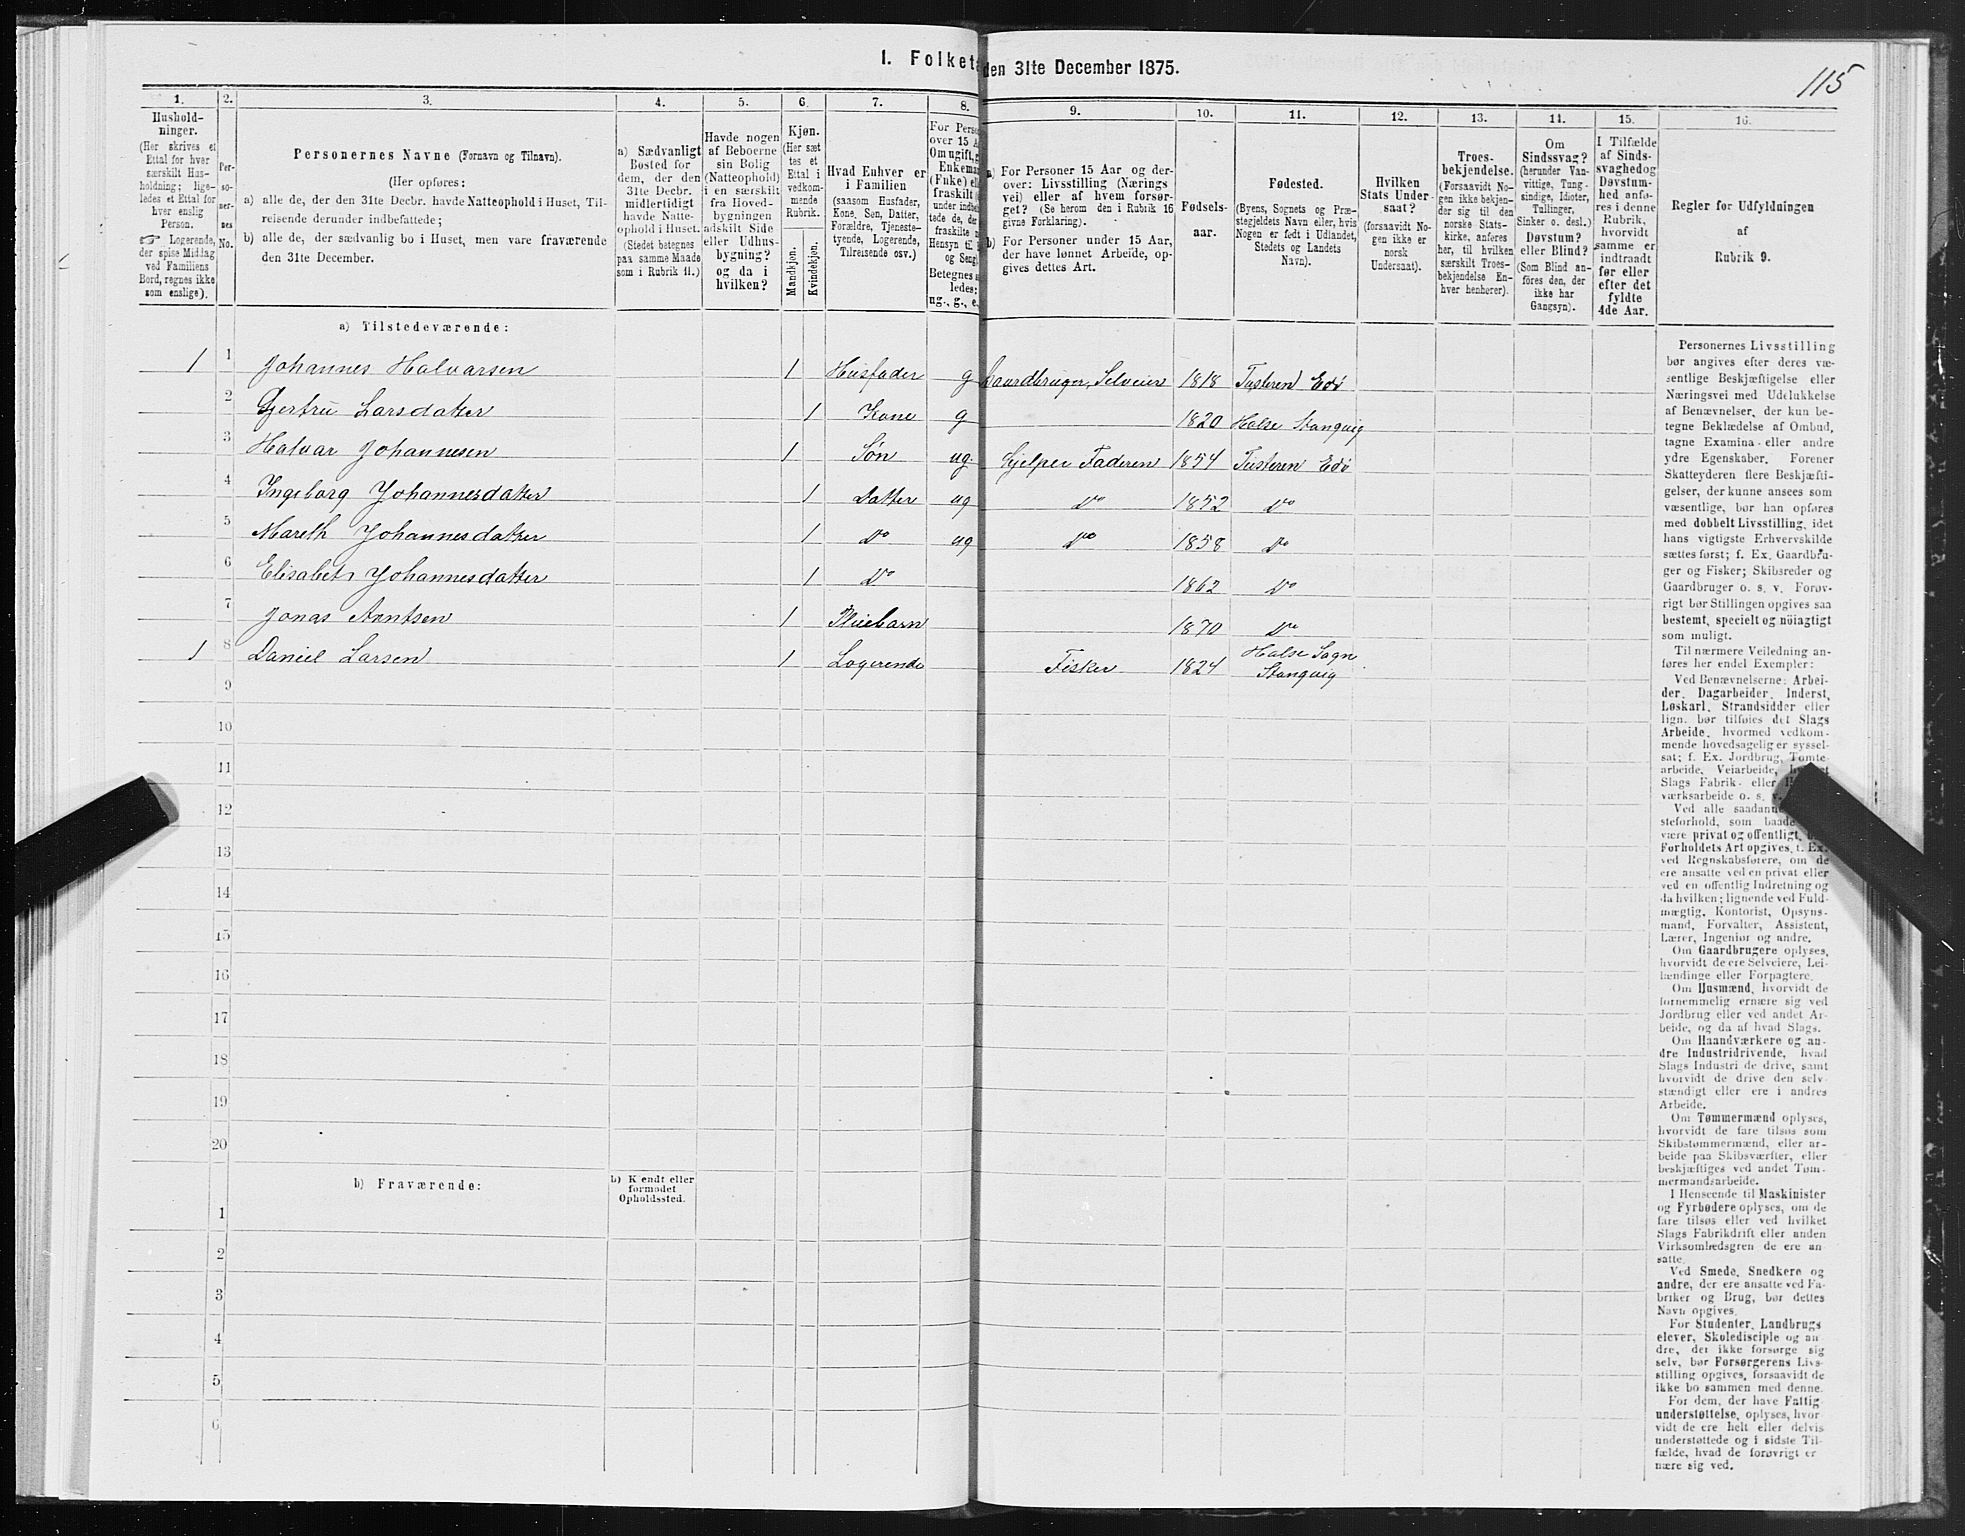 I. Folketæ
den 31te December 1875.
115
1.
2.
3.
4.
5.
6.
7.
8.
9.
10.
11.
12.
13.
14.
15.
16.
Hushold-
ninger.
(Her skrives et
Ettal for hver
særskilt Hus-
holdning; lige-
ledes et Ettal for
hver enslig
Person.
☞ Logerende,
der spise Middag
ved Familiens
Bord, regnes ikke
som enslige).
Per-
so-
ner-
nes
No.
Personernes Navne (Fornavn og Tilnavn).
(Her opføres:
a) alle de, der den 31te Decbr. havde Natteophold i Huset, Til-
reisende derunder indbefattede;
b) alle de, der sædvanlig bo i Huset, men vare fraværende
den 31te December.
a) Sædvanligt
Bosted for
dem, der den
31te Decbr.
midlertidigt
havde Natte-
ophold i Huset.
(Stedet betegnes
paa samme Maade
som i Rubrik 11.)
Havde nogen
af Beboerne
sin Bolig
(Natteophold)
i en særskilt
fra Hoved-
bygningen
adskilt Side
eller Udhus-
bygning?
og da i
hvilken?
Kjøn.
(Her sæt
tes et
Ettal i
vedkom-
mende
Rubrik.
Mandkjøn.
Kvindekjøn.
Hvad Enhver er
i Familien
(saasom Husfader,
Kone, Søn, Datter,
Forældre, Tjeneste-
tyende, Logerende,
Tilreisende osv.)
For Perso
over 15 A
Om ugift, g
Enkeman
(Enke) ell
fraskilt
under indbe
tede de, de
fraskilte
Hensyn til
og Seng
Betegnes s
ledes:
ug., g., e.
a) For Personer 15 Aar og der-
over: Livsstilling (Nærings
vei) eller af hvem forsør-
get? (Se herom den i Rubrik 16
givne Forklaring).
b) For Personer under 15 Aar,
der have lønnet Arbeide, op-
gives dettes Art.
Fødsels-
aar.
Fødested.
(Byens, Sognets og Præ-
stegjeldets Navn eller, hvis
Nogen er født i Udlandet,
Stedets og Landets
Navn).
Hvilken
Stats Under
saat?
(forsaavidt No-
gen ikke er
norsk
Undersaat).
Troes-
bekjendelse.
(Forsaavidt No-
gen ikke bekjen-
der sig til den
norske Stats-
kirke, anføres
her, til hvilken
særskilt Troes-
bekjendelse En-
hver henhører).
Om
Sindssvag?
(herunder Van-
vittige, Tung-
sindige, Idioter,
Tullinger,
Sinker o. desl.)
Døvstum?
eller Blind?
(Som Blind an-
føres den, der
ikke har
Gangsyn).
I Tilfælde
af Sinds-
svaghed og
Døvstum-
hed anfø-
res i denne
Rubrik,
hvorvidt
samme er
indtraadt
før eller
efter det
fyldte
4de Aar.
Regler for Udfyldningen
af
Rubrik 9.
a) Tilstedeværende:
1 1 Johannes Halvarsen 1 Husfader g Gaardbruger, Selveier 1818 Tusteren Edø
2 Gjertru Larsdatter 1 Kone g 1820 Halse Stangvig
3 Halvar Johannesen 1 Søn ug. Hjelper Faderen 1854 Tusteren Edø
4 Ingeborg Johannesdatter 1 Datter ug Do 1852 Do
5 Mareth Johannesdatter 1 Do ug Do 1858 Do
6 Elisabet Johannesdatter 1 Do 1862 Do
7 Jonas Arntsen 1 Pliebarn 1870 Do
1 8 Daniel Larsen 1 Logerende Fisker 1824 Halse Sogn
Stangvig
9
10
11
12
13
14
15
16
17
18
19
20
b) Fraværende:
b) Kendt eller
formodet
Opholdssted.
1
2
3
4
5
6
Personernes Livsstilling
bør angives efter deres væ-
sentlige Beskjæftigelse eller
Næringsvei med Udelukkelse
af Benævnelser, der kun be-
tegne Beklædelse af Ombud,
tagne Examina eller andre
ydre Egenskaber. Forener
Skatteyderen flere Beskjæfti-
gelser, der kunne ansees som
væsentlige, bør han opføres
med dobbelt Livsstilling, idet
hans vigtigste Erhvervskilde
sættes først; f. Ex. Gaardbru-
ger og Fisker; Skibsreder og
Gaardbruger o. s. v. Forøv-
rigt bør Stillingen opgives saa
bestemt, specielt og nöiagtigt
som muligt.
Til nærmere Veiledning an-
føres her endel Exempler:
Ved Benævnelserne: Arbei-
der, Dagarbeider, Inderst,
Løskarl, Strandsidder eller
lign. bør tilføies det Slags
Arbeide, hvormed vedkom-
mende hovedsagelig er syssel-
sat; f. Ex. Jordbrug, Tomte-
arbeide, Veiarbeide,
Slags Fabrik- eller
værksarbeide o. s. v.
Ved alle saadanne
steforhold, som baade
være privat og offentligt,
Forholdets Art opgives, f. Ex.
ved Regnskabsførere, om de
ere ansatte ved en privat eller
ved en offentlig Indretning og
da hvilken; lignende ved Fuld-
mægtig, Kontorist, Opsyns-
mand, Forvalter, Assistent,
Lærer, Ingeniør og andre.
Om Gaardbrugere oplyses,
hvorvidt de ere Selveiere, Lei-
lændinge eller Forpagtere.
Om Husmænd, hvorvidt de
fornemmelig ernære sig ved
Jordbrug eller ved andet Ar-
beide, og da af hvad Slags.
Om Haandværkere og an-
dre Industridrivende, hvad
Slags Industri de drive, samt
hvorvidt de drive den selv-
stændigt eller ere i andres
Arbeide.
Om Tømmermænd oplyses,
hvorvidt de fare tilsøs som
Skibstømmermænd, eller ar-
beide paa Skibsværfter, eller
beskjæftiges ved andet Tøm-
mermandsarbeide.
I Henseende til Maskinister
og Fyrbødere oplyses, om de
fare tilsøs eller ved hvilket
Slags Fabrikdrift eller anden
Virksomhedsgren de ere an-
satte.
Ved Smede, Snedkere og
andre, der ere ansatte ved Fa-
briker og Brug, bør dettes
Navn opgives.
For Studenter, Landbrugs
elever, Skoledisciple og an-
dre, der ikke forsørge sig
selv, bør Forsørgerens Livs-
stilling opgives, forsaavidt de
ikke bo sammen med denne.
For dem, der have Fattig-
understøttelse, oplyses, hvor-
vidt de ere helt eller delvis
understøttede og i sidste Til-
fælde, hvad de forøvrigt er-
nære sig ved.